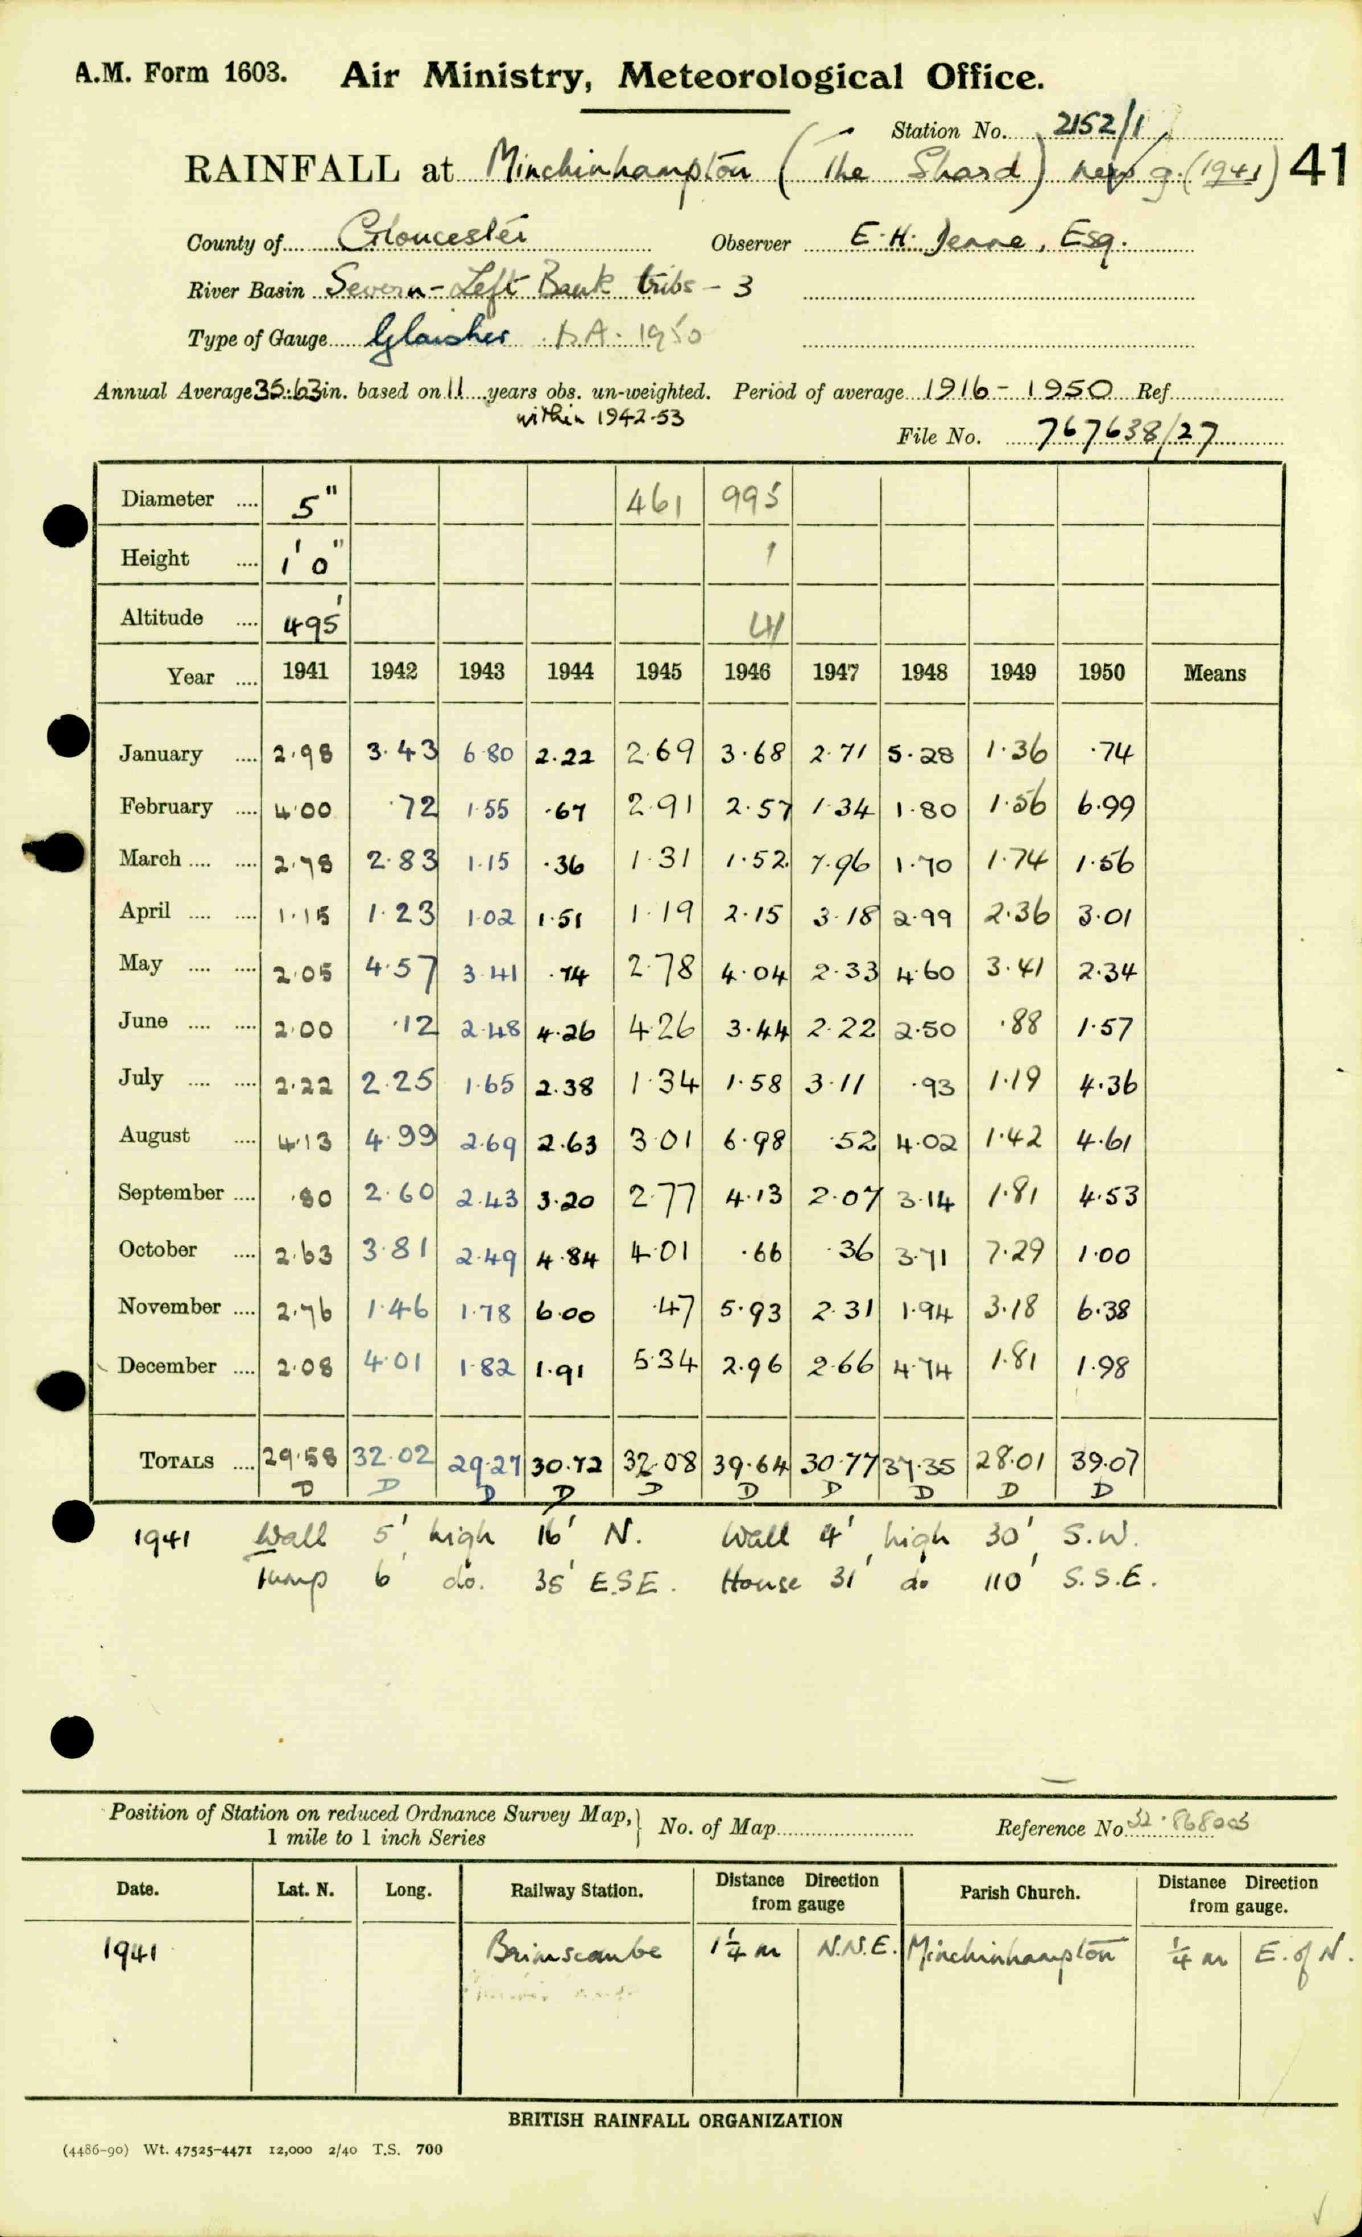 A.M. Form 1603. Air Ministry, Meteorological Office.
Station No. 2152/1
RAINFALL at Minchinhampton (The Shard) new g. (1941) 41
County of Gloucester Observer E. H. Jenne, Esq.
River Basin Severn - Left Bank tribs - 3
Type of Gauge Glaisher 1950
Annual Average 35.63 in. based on 11 years obs. un-weighted. Period of average 1916 - 1950 Ref
within 1942-53
File No. 767638/27
Diameter .... 5" 461 995
Height .... 1' 0" 1
Altitude .... 495'
Year .... 1941 1942 1943 1944 1945 1946 1947 1948 1949 1950 Means
January .... 2.98 3.43 6.80 2.22 2.69 3.68 2.71 5.28 1.36 .74
February .... 4.00 .72 1.55 .67 2.91 2.57 1.34 1.80 1.56 6.99
March .... .... 2.78 2.83 1.15 .36 1.31 1.52 7.96 1.70 1.74 1.56
April .... .... 1.15 1.23 1.02 1.51 1.19 2.15 3.18 2.99 2.36 3.01
May .... .... 2.05 4.57 3.41 .74 2.78 4.04 2.33 4.60 3.41 2.34
June .... .... 2.00 .12 2.48 4.26 4.26 3.44 2.22 2.50 .88 1.57
July .... .... 2.22 2.25 1.65 2.38 1.34 1.58 3.11 .93 1.19 4.36
August .... 4.13 4.99 2.69 2.63 3.01 6.98 .52 4.02 1.42 4.61
September .... .80 2.60 2.43 3.20 2.77 4.13 2.07 3.14 1.81 4.53
October .... 2.63 3.81 2.49 4.84 4.01 .66 .36 3.71 7.29 1.00
November .... 2.76 1.46 1.78 6.00 .47 5.93 2.31 1.94 3.18 6.38
December .... 2.08 4.01 1.82 1.91 5.34 2.96 2.66 4.74 1.81 1.98
TOTALS .... 29.58 32.02 29.27 30.72 32.08 39.64 30.77 37.35 28.01 39.07
D D D D D D D D D D
1941 Wall 5' high 16' N. Wall 4' high 30' S.W.
Tump 6' do. 35' E.S.E. House 31' do 110' S.S.E.
Position of Station on reduced Ordnance Survey Map,} No. of Map Reference No. 32.868003
1 mile to 1 inch Series
Date. Lat. N. Long. Railway Station. Distance from gauge Direction Parish Church. Distance from gauge. Direction
1941 Brimscombe 1¼ m N.N.E. Minchinhampton ¼ m E. of N.
BRITISH RAINFALL ORGANIZATION
(4486-90) Wt. 47525-4471 12,000 2/40 T.S. 700